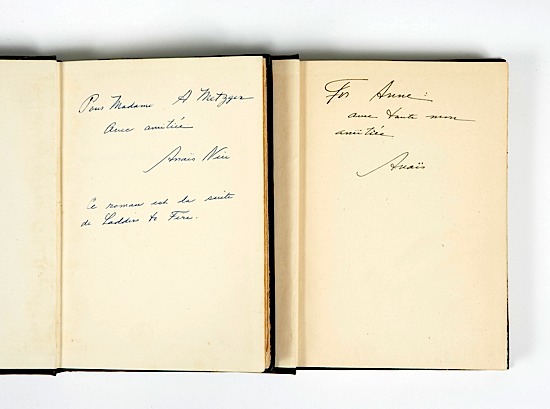 Pour Madame A Metzger
Avec amitié
Anaïs Nin
Ce roman est la suite
de Ladders to Fire.
For Anne:
avec toute mon
amitiée
Anaïs